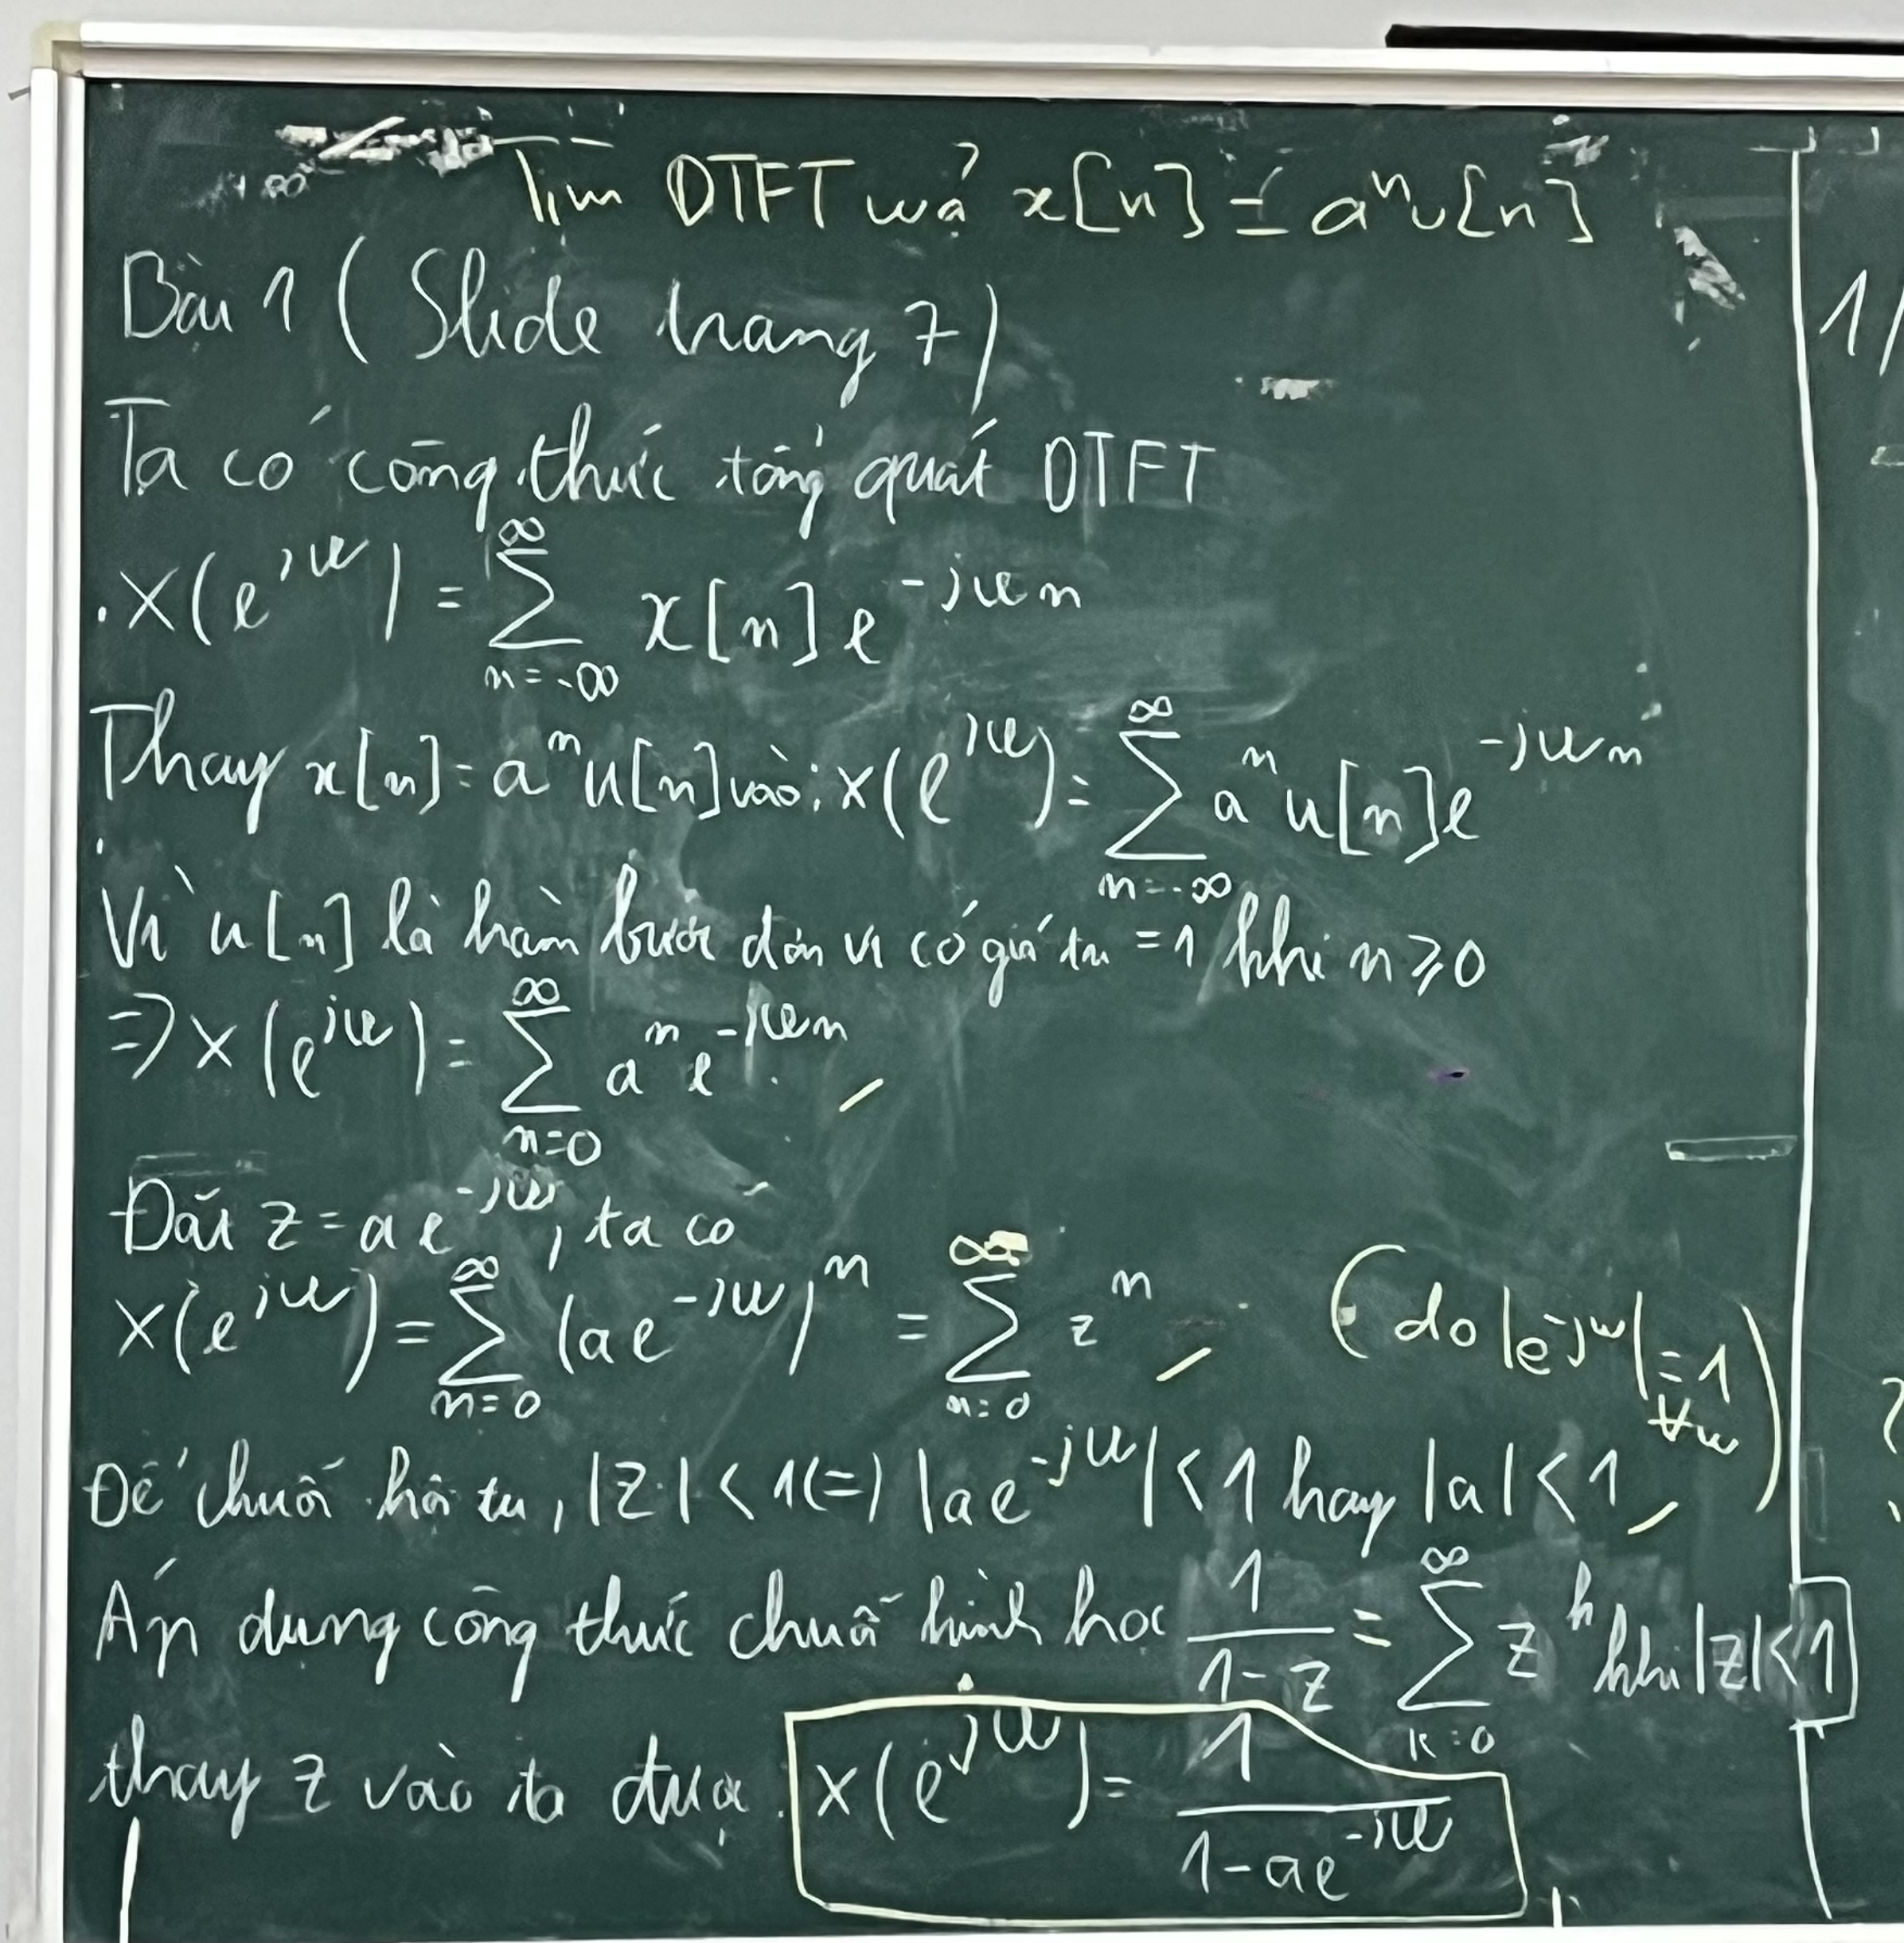 Tìm DTFT của x[n] = aⁿu[n]
Bài 1 (Slide trang 7)
1/
Ta có công thức tổng quát DTFT
. X(e^{jω}) = \sum_{n=-∞}^{∞} x[n] e^{-jωn}
Thay x[n] = aⁿu[n] vào: X(e^{jω}) = \sum_{n=-∞}^{∞} aⁿ u[n] e^{-jωn}
Vì u[n] là hàm bước đơn vị có giá trị = 1 khi n ≥ 0
=> X(e^{jω}) = \sum_{n=0}^{∞} aⁿ e^{-jωn}
Đặt z = a e^{-jω}, ta có
X(e^{jω}) = \sum_{n=0}^{∞} (ae^{-jω})ⁿ = \sum_{n=0}^{∞} zⁿ (do |e^{-jω}| = 1 ∀ω)
Để chuỗi hội tụ, |z| < 1 (=) |ae^{-jω}| < 1 hay |a| < 1
Áp dụng công thức chuỗi hình học \frac{1}{1-z} = \sum_{k=0}^{∞} z^k khi |z| < 1
thay z vào ta được: X(e^{jω}) = \frac{1}{1-ae^{-jω}}